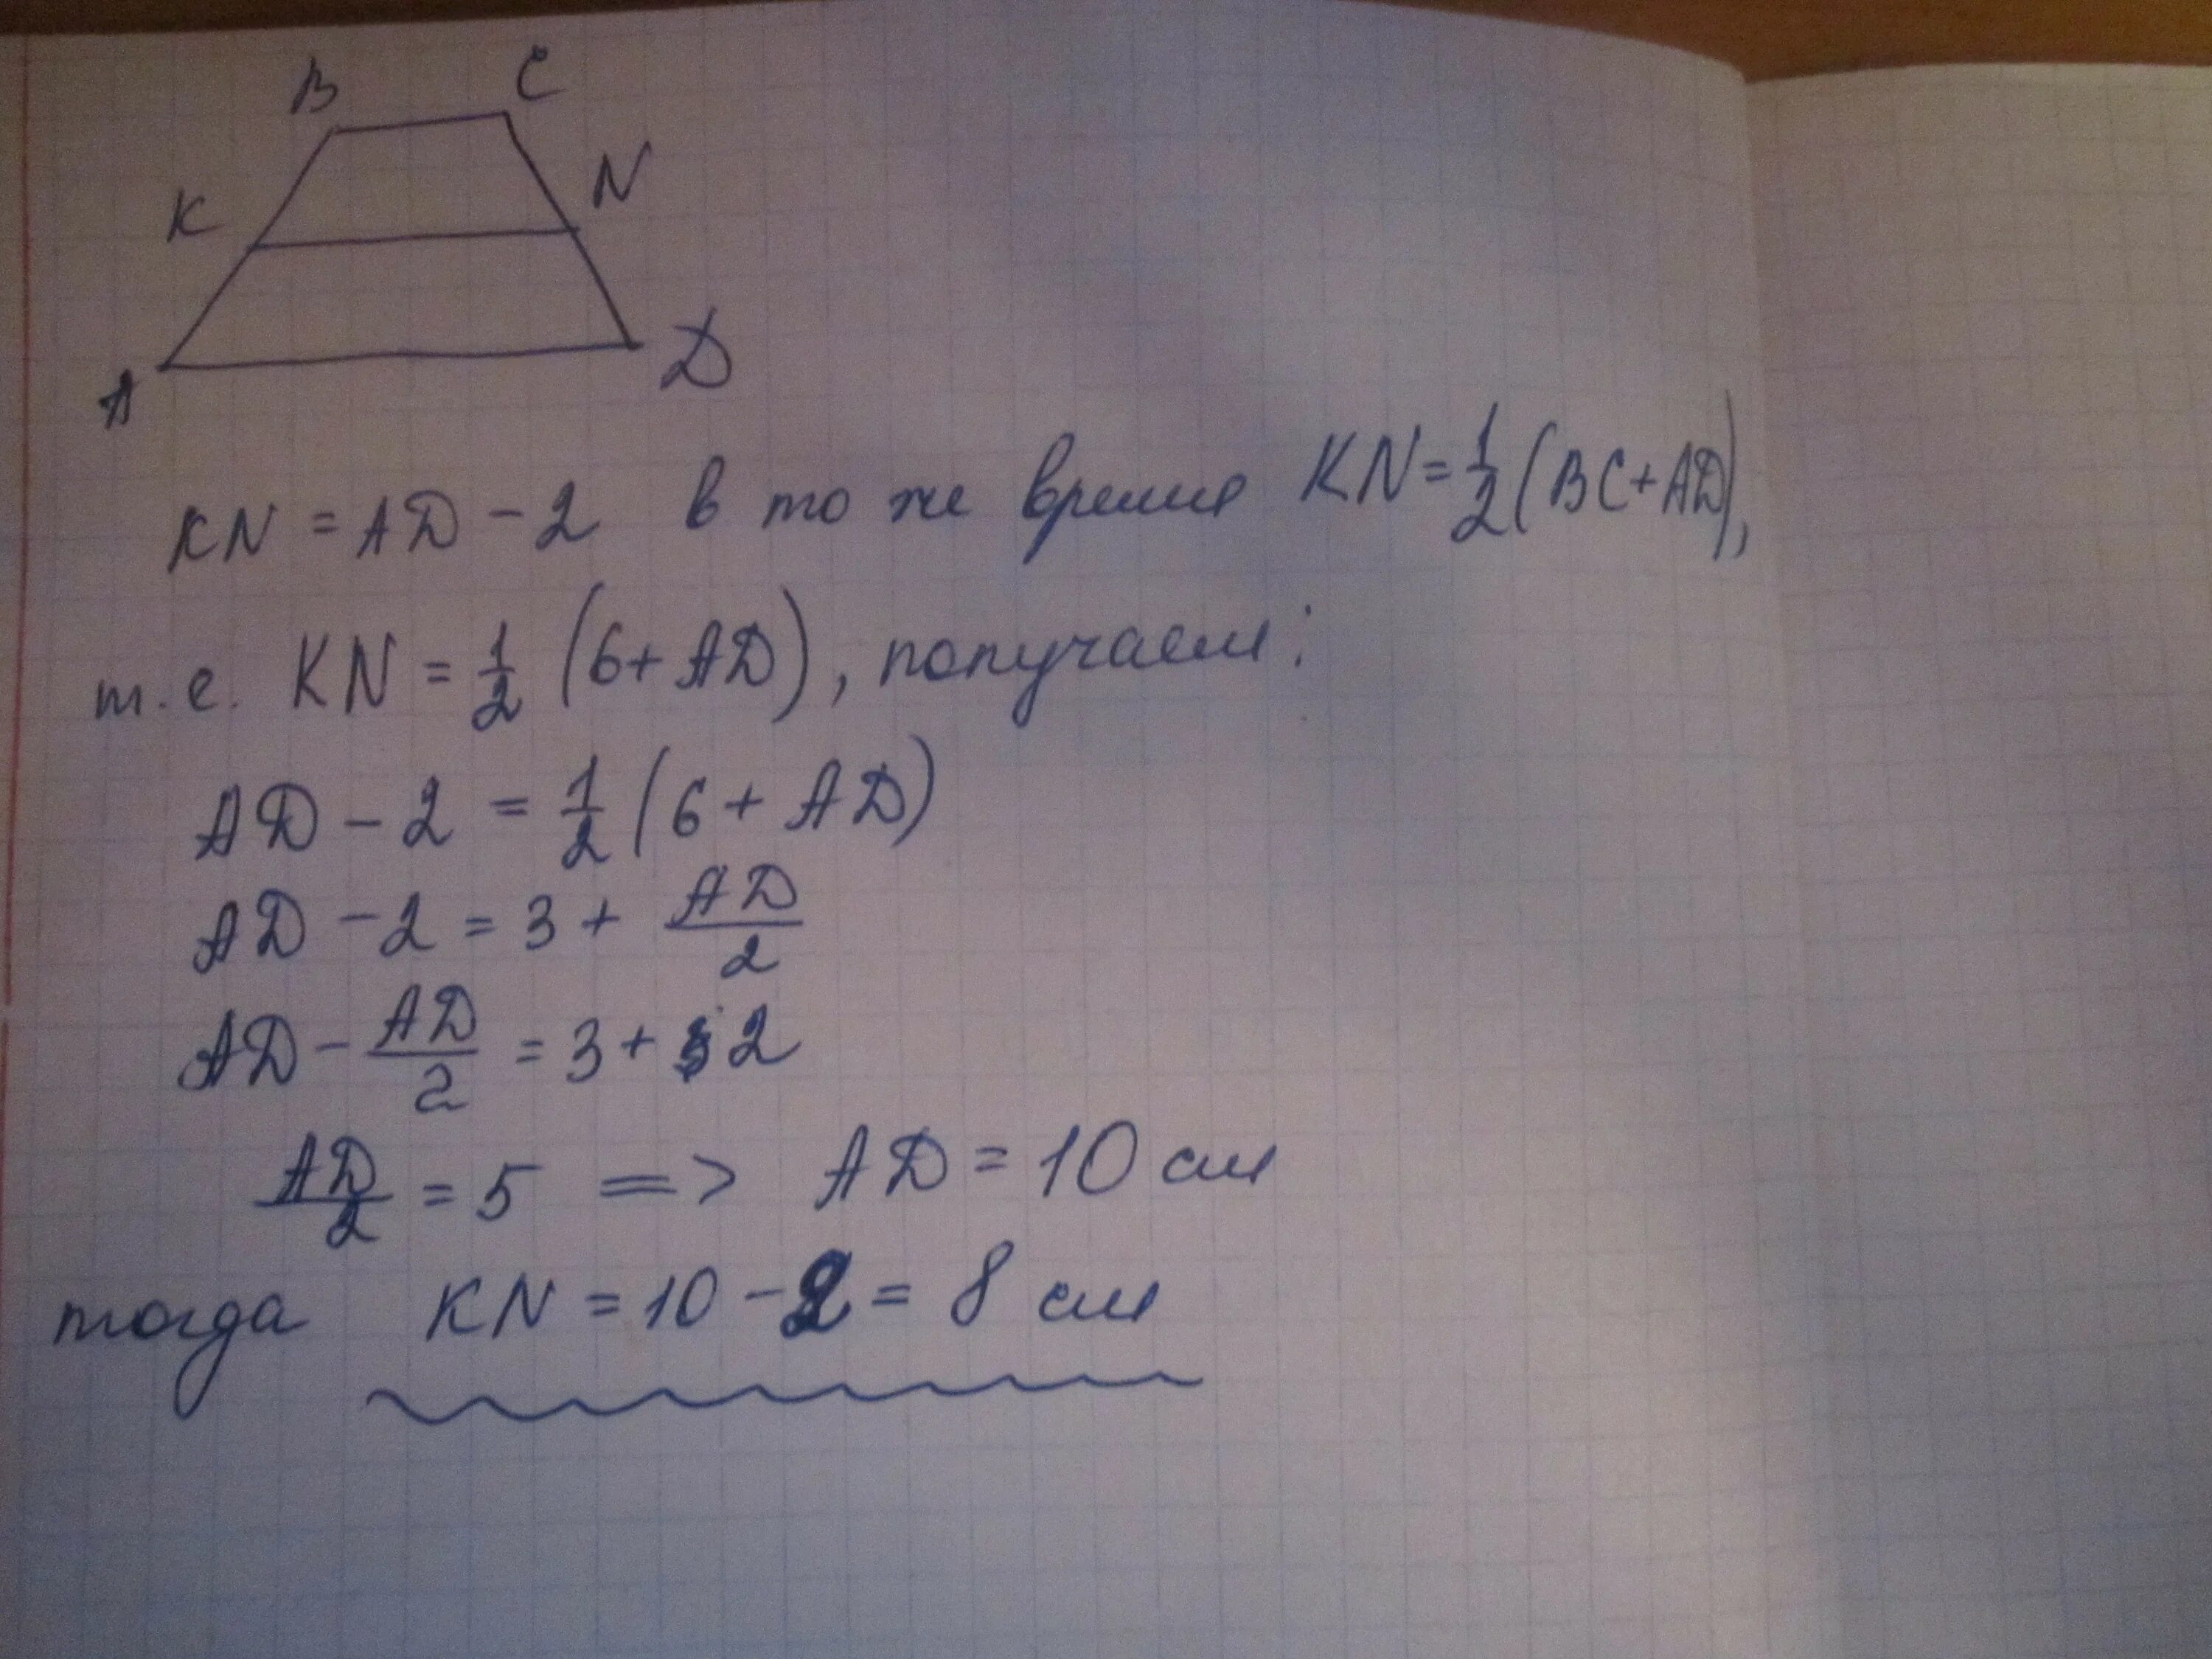 B C
K N
A D
KN = AD - 2 в то же время KN = 1/2 (BC + AD),
т.е. KN = 1/2 (6 + AD), получаем:
AD - 2 = 1/2 (6 + AD)
AD - 2 = 3 + AD/2
AD - AD/2 = 3 + 2
AD/2 = 5 => AD = 10 см
тогда KN = 10 - 2 = 8 см